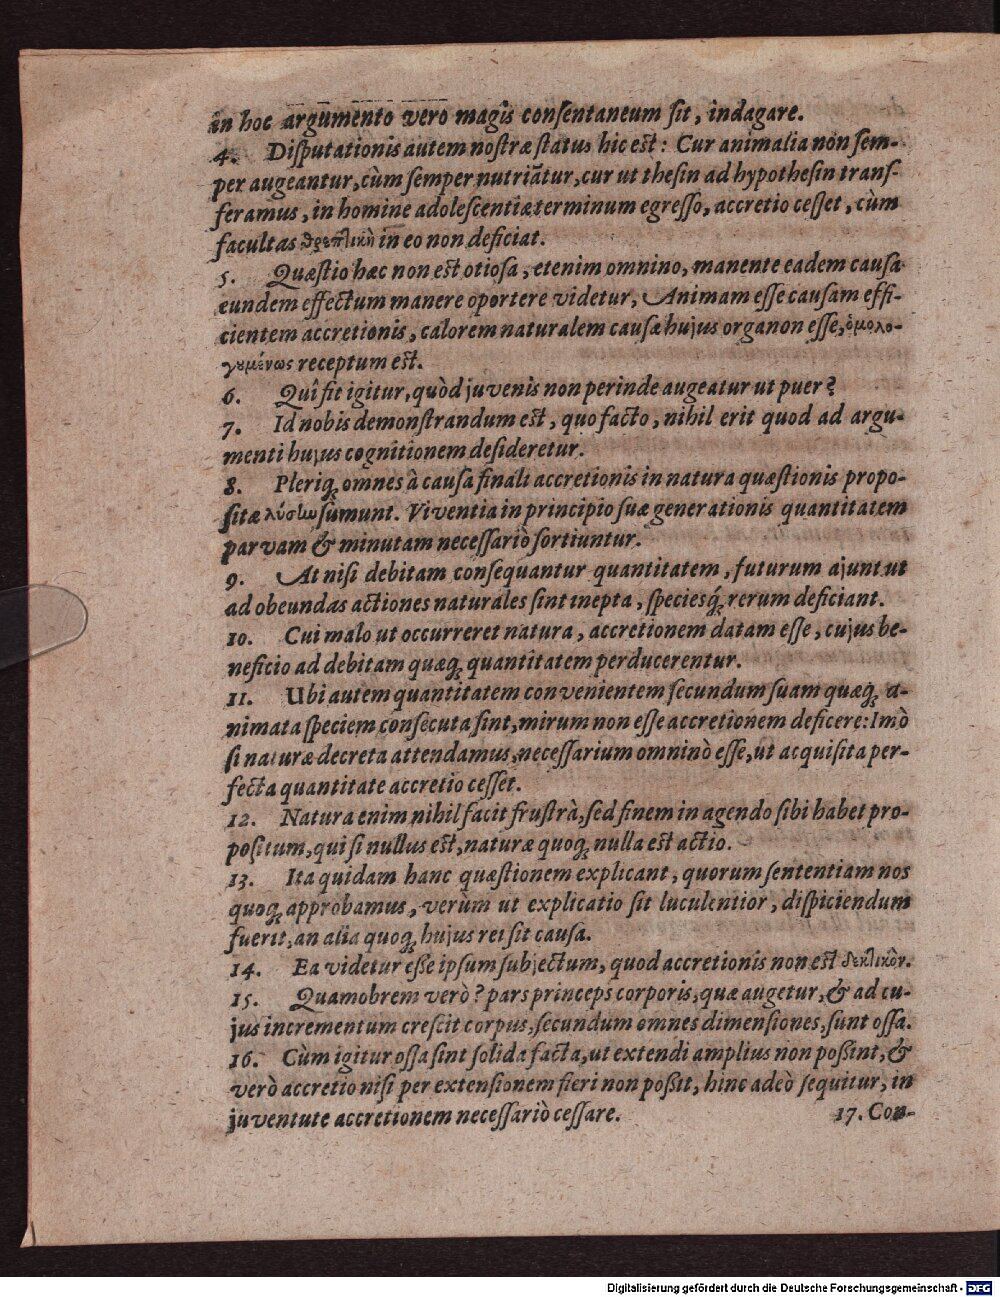 in hoc argumento vero magis consentaneum sit, indagare.
4. Disputationis autem nostræ status hic est: Cur animalia non sem-
per augeantur, cùm semper nutriātur, cur ut thesin ad hypothesin trans-
feramus, in homine adolescentiæ terminum egresso, accretio cesset, cùm
facultas θρεπτικὴ in eo non deficiat.
5. Quæstio hæc non est otiosa, etenim omnino, manente eadem causa
eundem effectum manere oportere videtur, Animam esse causam effi-
cientem accretionis, calorem naturalem causæ hujus organon esse, ὁμολο-
γουμένως receptum est.
6. Quî fit igitur, quòd juvenis non perinde augeatur ut puer?
7. Id nobis demonstrandum est, quo facto, nihil erit quod ad argu-
menti hujus cognitionem desideretur.
8. Pleriq; omnes à causa finali accretionis in natura quæstionis propo-
sitæ λύσιν sumunt. Viventia in principio suæ generationis quantitatem
parvam & minutam necessariò sortiuntur.
9. At nisi debitam consequantur quantitatem, futurum ajunt ut
ad obeundas actiones naturales sint inepta, speciesq́; rerum deficiant.
10. Cui malo ut occurreret natura, accretionem datam esse, cujus be-
neficio ad debitam quæq; quantitatem perducerentur.
11. Ubi autem quantitatem convenientem secundum suam quæq; a-
nimata speciem consecuta sint, mirum non esse accretionem deficere: Imò
si naturæ decreta attendamus, necessarium omninò esse, ut acquisita per-
fecta quantitate accretio cesset.
12. Natura enim nihil facit frustrà, sed finem in agendo sibi habet pro-
positum, qui si nullus est, naturæ quoq; nulla est actio.
13. Ita quidam hanc quæstionem explicant, quorum sententiam nos
quoq; approbamus, verùm ut explicatio sit luculentior, dispiciendum
fuerit, an alia quoq; hujus rei sit causa.
14. Ea videtur esse ipsum subjectum, quod accretionis non est δεκτικὸν.
15. Quamobrem verò? pars princeps corporis, quæ augetur, & ad cu-
jus incrementum crescit corpus, secundum omnes dimensiones, sunt ossa.
16. Cùm igitur ossa sint solida facta, ut extendi amplius non possint, &
verò accretio nisi per extensionem fieri non possit, hinc adeò sequitur, in
juventute accretionem necessariò cessare.
17. Con-
Digitalisierung gefördert durch die Deutsche Forschungsgemeinschaft - DFG